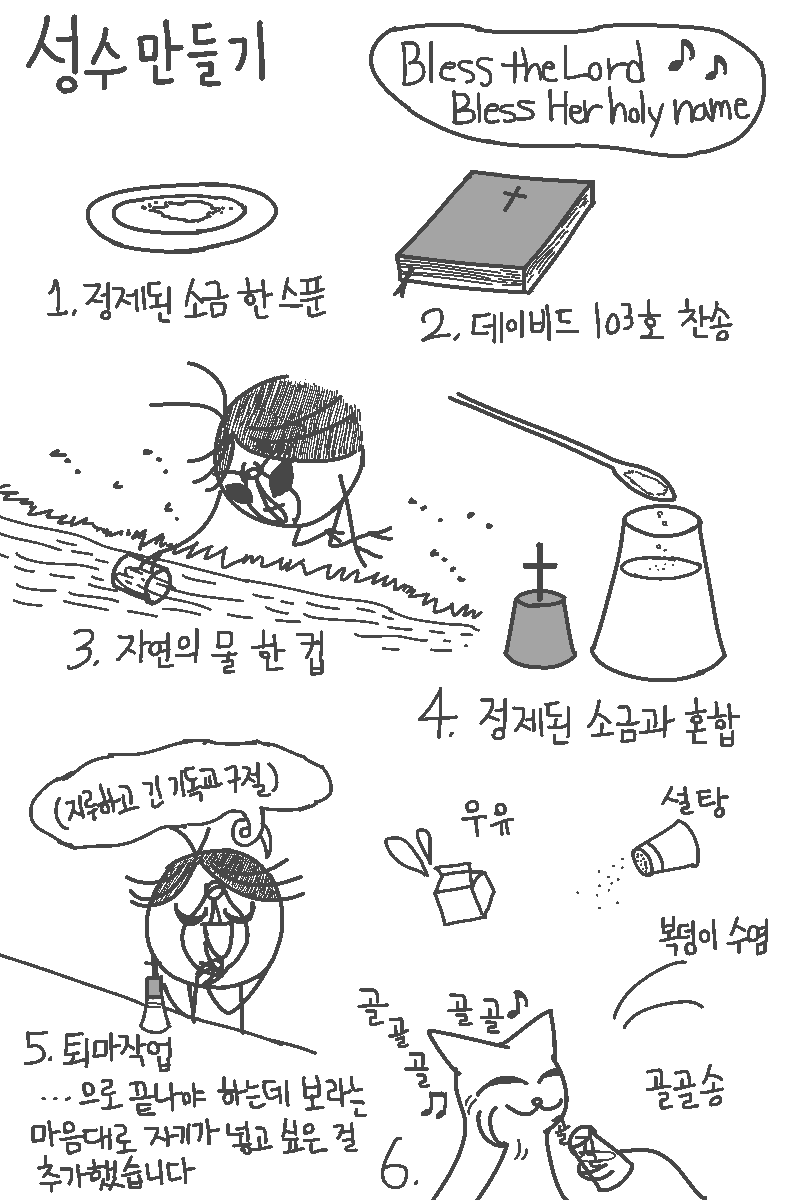 성수만들기
Bless the Lord
Bless Her holy name
1. 정제된 소금 한스푼
2. 데이비드 103호 찬송
3. 자연의 물 한 컵
4. 정제된 소금과 혼합
(지루하고 긴 기독교 구절)
5. 퇴마작업
...으로 끝나야 하는데 보라는
마음대로 자기가 넣고 싶은 걸
추가했습니다
우유
설탕
복덩이 수염
골
골
골
골골
골골송
6.